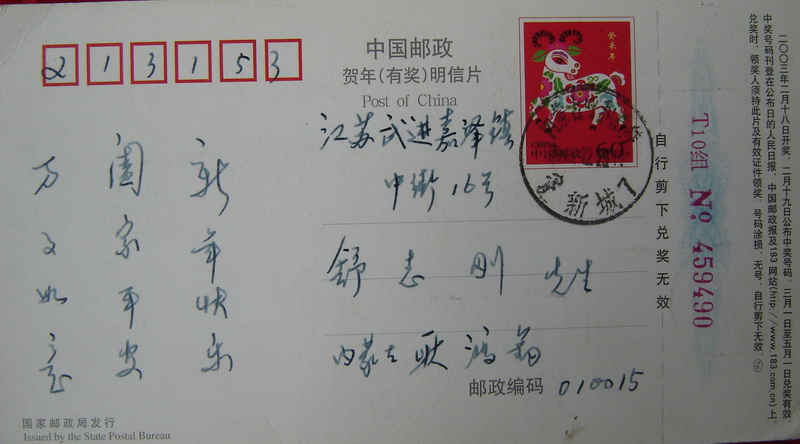 213153
中国邮政
贺年(有奖)明信片
Post of China
癸未年
CHINA
中国邮政
60
新城
江苏武进嘉泽镇
中街16号
舒志刚 先生
内蒙古 耿鸿钧
邮政编码 010015
新年快乐
阖家平安
万事如意
国家邮政局发行
Issued by the State Postal Bureau
自行剪下兑奖无效
T10组 No 459490
二〇〇三年二月十八日开奖，二月十九日公布中奖号码，三月一日至五月一日兑奖有效，
中奖号码刊登在公布日的人民日报、中国邮政报及183网站(http://www.183.com.cn)上，
兑奖时，领奖人须持此片及有效证件领奖，号码涂损、无号、自行剪下无效。